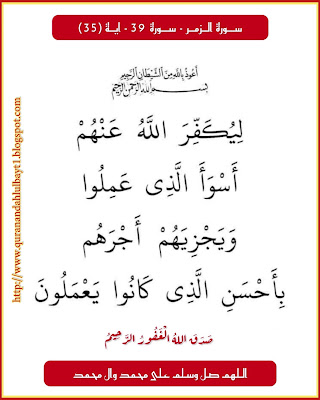 سورة الزمر - سورة 39 - اية (35)
أعوذ بالله من الشيطان الرجيم
بسم الله الرحمن الرحيم
لِيُكَفِّرَ اللَّهُ عَنْهُمْ
أَسْوَأَ الَّذِى عَمِلُوا
وَيَجْزِيَهُمْ أَجْرَهُم
بِأَحْسَنِ الَّذِى كَانُوا يَعْمَلُونَ
صَدَقَ اللهُ الْغَفُورُ الرَّحِيمُ
اللهم صل وسلم على محمد وال محمد
http://www.quranandahlulbayt1.blogspot.com